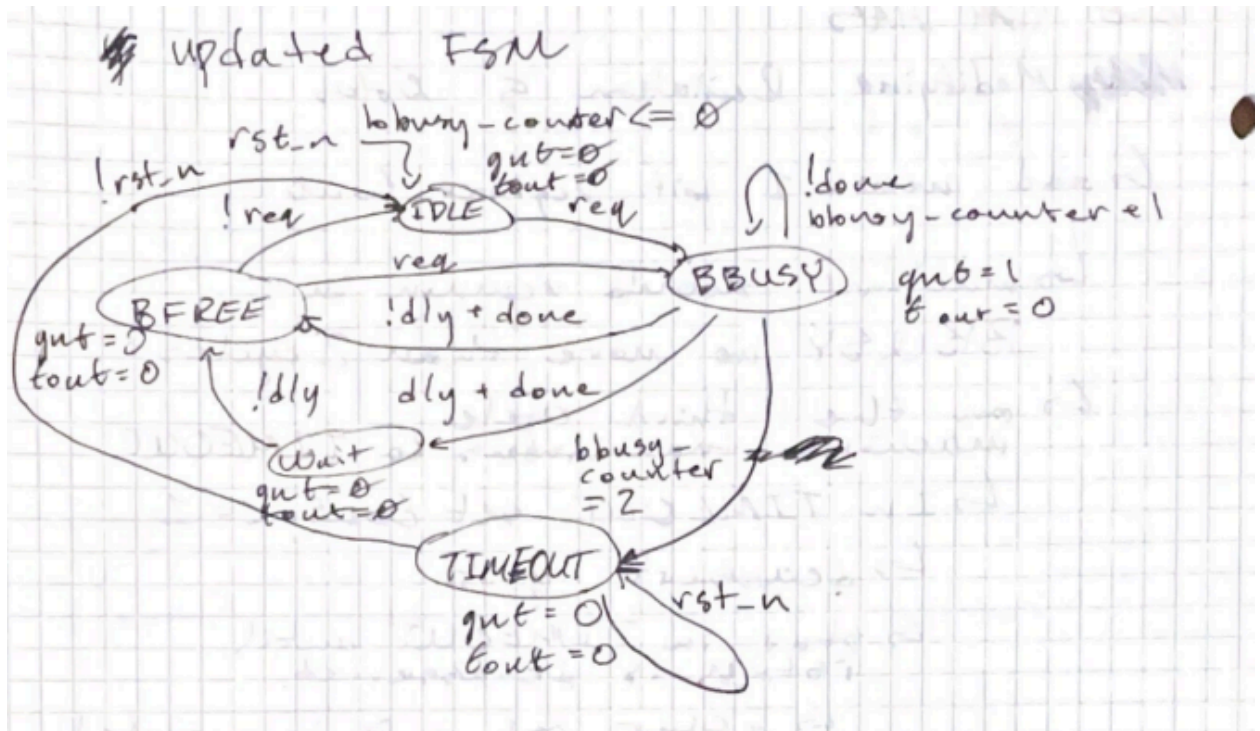 updated FSM
bbusy-counter <= 0
rst_n
gnt=0
tout=0
!rst_n
!req
IDLE
req
!done
bbusy-counter +1
req
BBUSY
gnt=1
tout=0
BFREE
!dly + done
gnt=0
tout=0
!dly
dly + done
Wait
gnt=0
tout=0
bbusy-
counter
=2
TIMEOUT
rst_n
gnt=0
tout=0